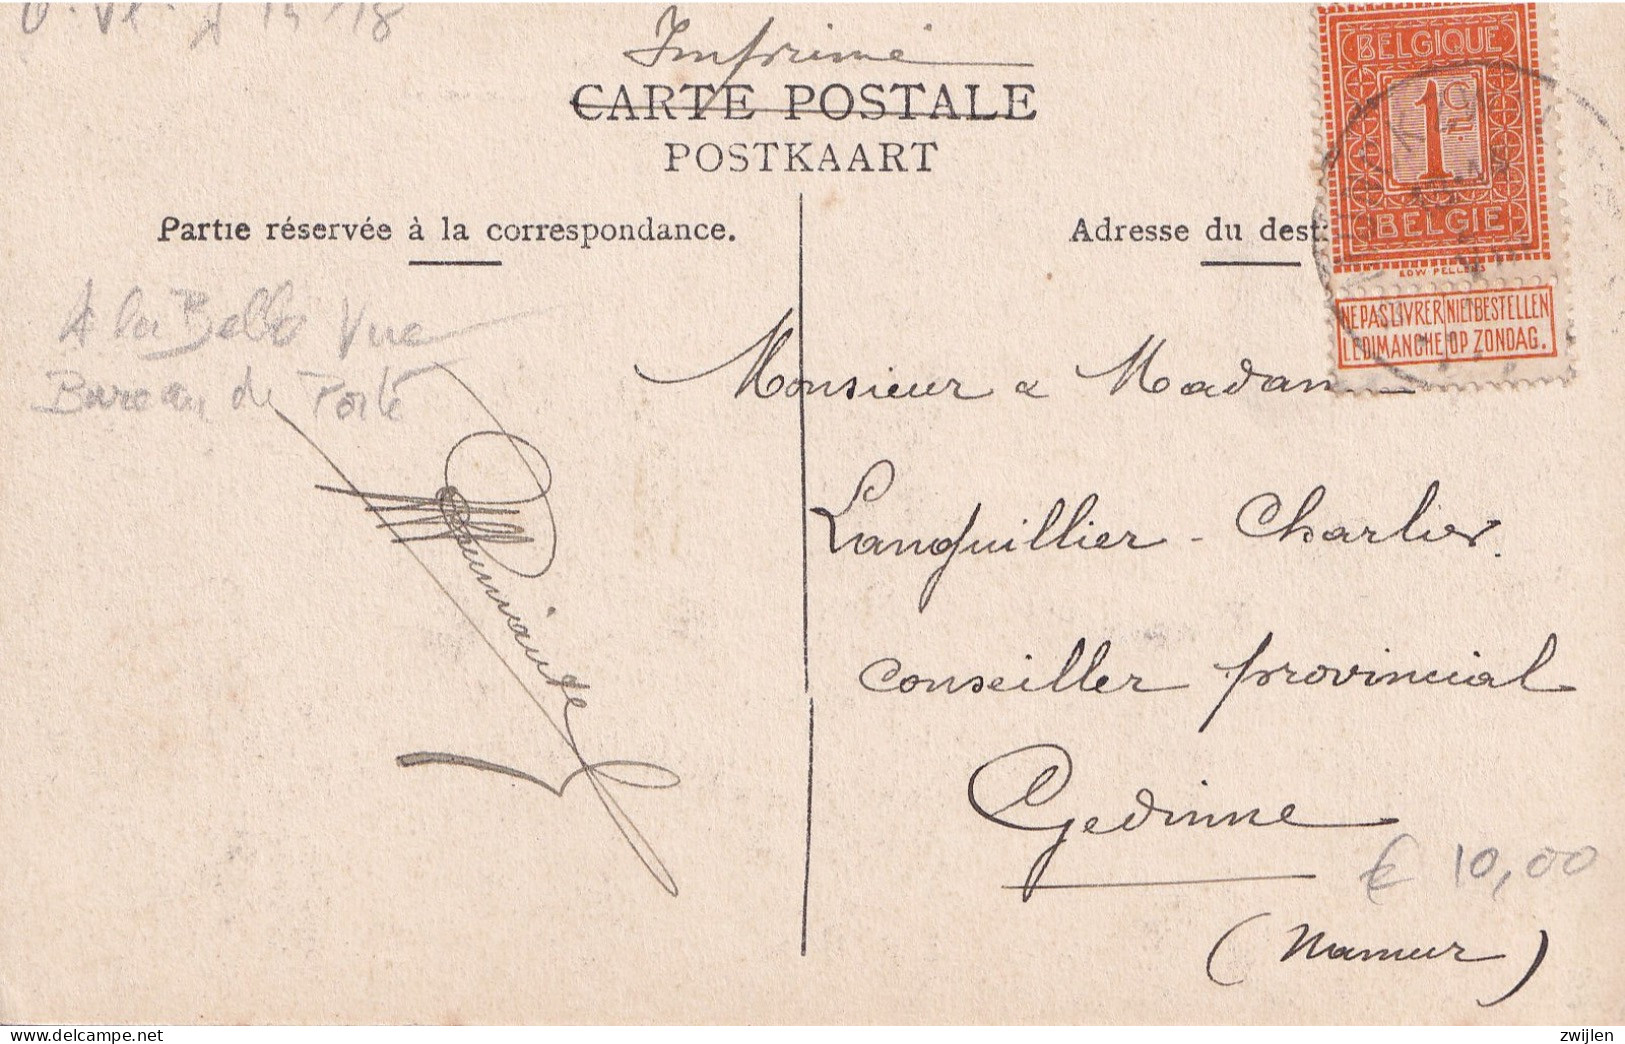 Imprimé
CARTE POSTALE
POSTKAART
BELGIQUE
1c
BELGIE
EDW PELLENS
NE PAS LIVRER NIET BESTELLEN
LE DIMANCHE OP ZONDAG.
Partie réservée à la correspondance.
Adresse du dest
A la Belle Vue
Bureau de Poste
Monsieur & Madam
Languillier - Charlier.
conseiller provincial
Gedinne
€ 10,00
(Namur)
zwijlen